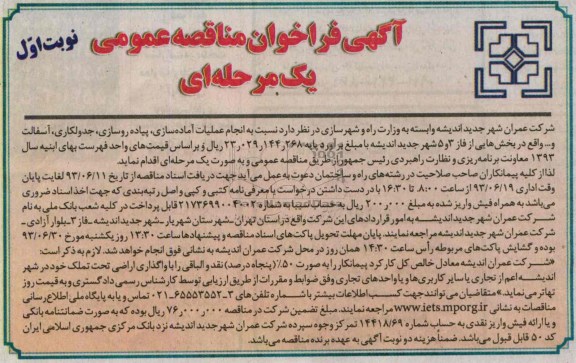 آگهی فراخوان مناقصه عمومی
یک مرحله‌ای
نوبت اول
شرکت عمران شهر جدید اندیشه وابسته به وزارت راه و شهرسازی در نظر دارد نسبت به انجام عملیات آماده‌سازی، پیاده روسازی، جدولکاری، آسفالت
و... واقع در بخش‌هایی از فاز ۲و۵ شهر جدید اندیشه با مبلغ برآورد پایه ۲۳٫۰۲۹٫۱۴۴٫۲۶۸ ریال و براساس قیمت‌های واحد فهرست بهای ابنیه سال
۱۳۹۳ معاونت برنامه‌ریزی و نظارت راهبردی رئیس جمهور از طریق مناقصه عمومی و به صورت یک مرحله‌ای اقدام نماید.
لذا از کلیه پیمانکاران صاحب صلاحیت در رشته‌های راه و ساختمان دعوت به عمل می‌آید جهت دریافت اسناد مناقصه از تاریخ ۹۳/۰۶/۱۱ لغایت پایان
وقت اداری ۹۳/۰۶/۱۹ از ساعت ۸:۰۰ تا ۱۶:۳۰ با در دست داشتن درخواست یا معرفی‌نامه کتبی و کپی واصل رتبه‌بندی که جهت اخذ اسناد ضروری
می‌باشد به همراه فیش واریز شده به مبلغ ۲۰۰٫۰۰۰ ریال به حساب سیبا به شماره ۲۱۷۳۶۹۹۰۰۴۰۰۲ قابل پرداخت در کلیه شعب بانک ملی به نام
شرکت عمران شهر جدید اندیشه به امور قراردادهای این شرکت واقع در استان تهران ـ شهرستان شهریار ـ شهر جدید اندیشه ـ فاز ۳ـ بلوار آزادی ـ
شرکت عمران شهر جدید اندیشه مراجعه نمایند. پایان مهلت تحویل پاکت‌های اسناد مناقصه و پیشنهادها ساعت ۱۳:۳۰ روز یکشنبه مورخ ۹۳/۰۶/۳۰
بوده و گشایش پاکت‌های مربوطه رأس ساعت ۱۴:۳۰ همان روز در محل شرکت عمران اندیشه به نشانی فوق انجام خواهد شد. لازم به ذکر است:
*شرکت عمران اندیشه معادل خالص کل کارکرد پیمانکار را به صورت ۵۰٪ (پنجاه درصد) نقد و الباقی را با واگذاری اراضی تحت تملک خود در شهر
اندیشه ـ اعم از تجاری یا سایر کاربری‌ها و یا واحدهای تجاری وفق ضوابط و مقررات از طریق ارزیابی توسط کارشناس رسمی دادگستری و به قیمت روز
تهاتر می‌نماید.*متقاضیان می‌توانند جهت کسب اطلاعات بیشتر با شماره تلفن‌های ۳ـ۶۵۵۵۳۵۵۲ـ۰۲۱ تماس و یا به پایگاه ملی اطلاع‌رسانی
مناقصات به نشانی www.iets.mporg.ir مراجعه نمایند. مبلغ تضمین شرکت در مناقصه ۷۶۰٫۰۰۰٫۰۰۰ ریال بوده که به صورت ضمانتنامه بانکی
و یا ارائه فیش واریز نقدی به حساب شماره ۱۴۴۱۸/۶۹ تمرکز وجوه سپرده شرکت عمران شهر جدید اندیشه نزد بانک مرکزی جمهوری اسلامی ایران
کد ۵۰ قابل قبول می‌باشد. ضمناً هزینه دو نوبت آگهی به عهده برنده مناقصه می‌باشد.